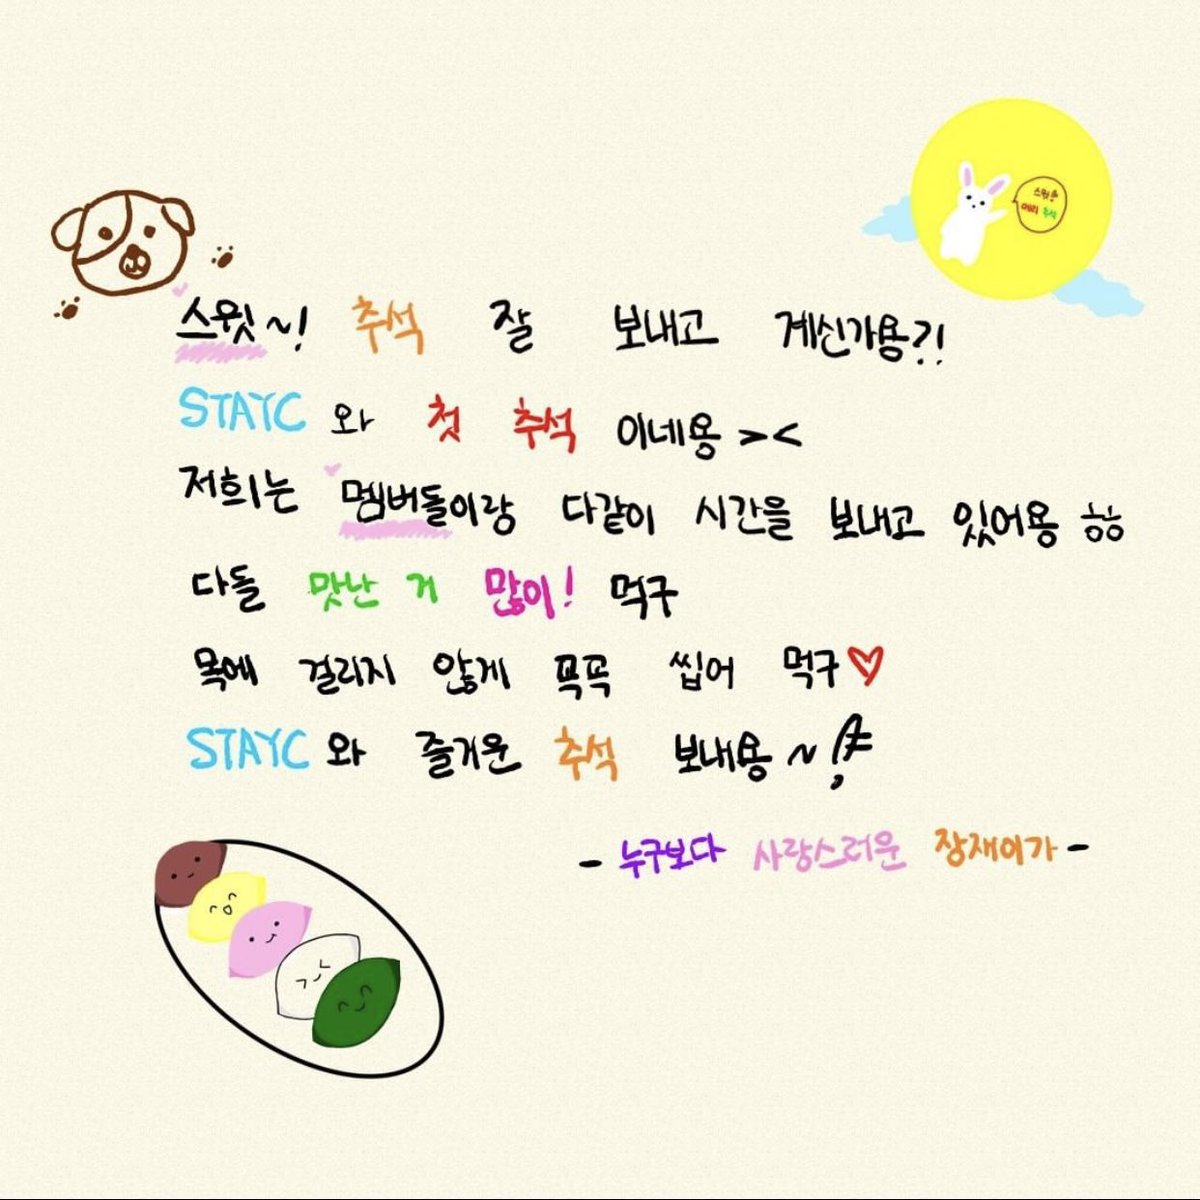 스윗!
메리 추석
스윗~! 추석 잘 보내고 계신가용?!
STAYC와 첫 추석이네용 ><
저희는 멤버들이랑 다같이 시간을 보내고 있어용 ㅎㅎ
다들 맛난 거 많이! 먹구
목에 걸리지 않게 꼭꼭 씹어 먹구♡
STAYC와 즐거운 추석 보내용~!
- 누구보다 사랑스러운 장재이가 -